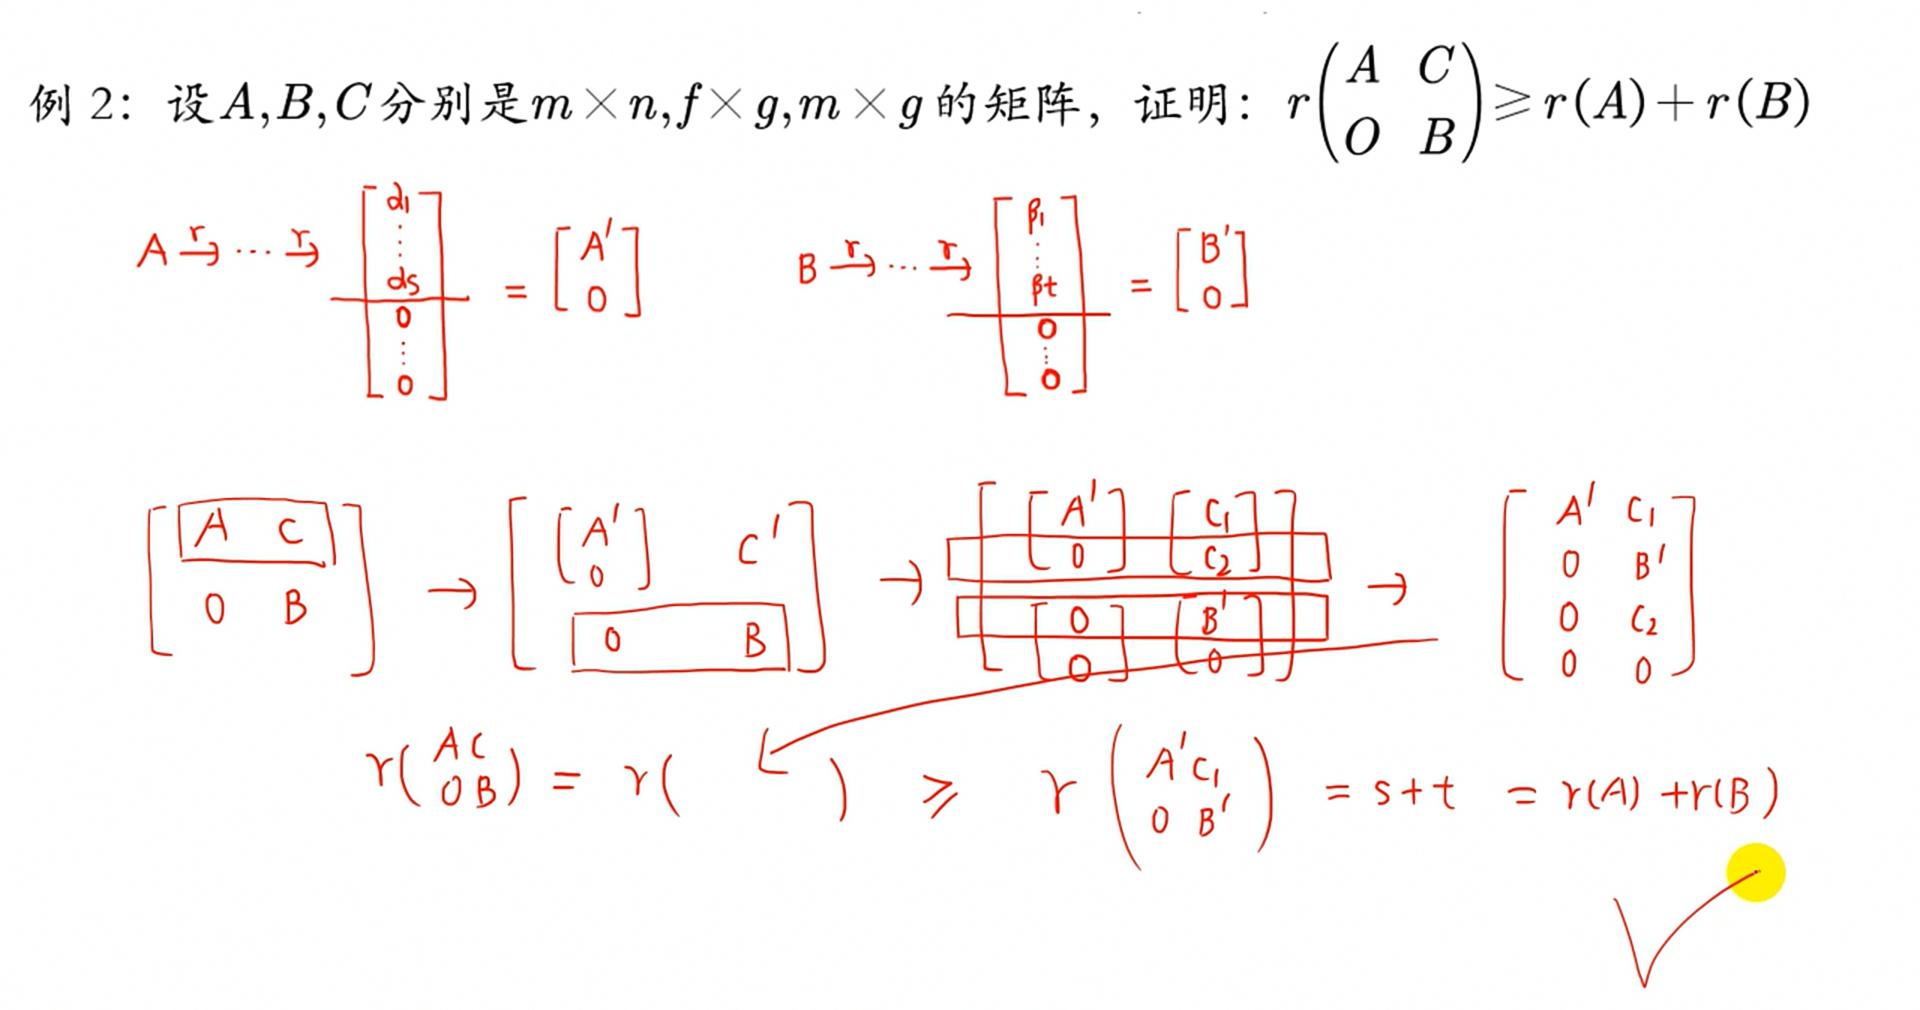 例 2：设A,B,C分别是m×n,f×g,m×g的矩阵，证明：r(A C O B)≥r(A)+r(B)
A →r ⋯ →r [α1 ⋮ αs 0 ⋮ 0] = [A' 0] B →r ⋯ →r [β1 ⋮ βt 0 ⋮ 0] = [B' 0]
[A C 0 B] → [[A' 0] C' 0 B] → [[A' 0] [C1 C2] [0 0] [B' 0]] → [A' C1 0 B' 0 C2 0 0]
r(A C 0 B) = r( ) ≥ r(A' C1 0 B') = s+t = r(A)+r(B)